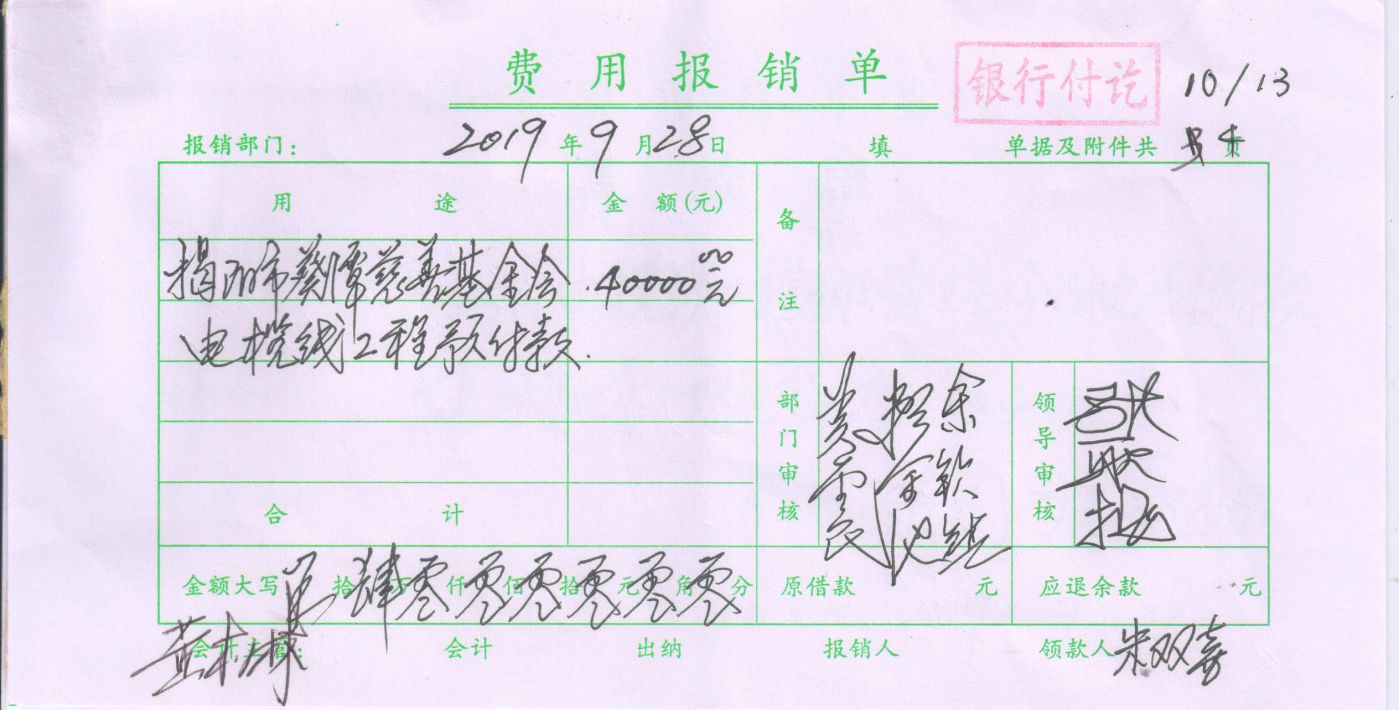 费用报销单
银行付讫
10/13
报销部门： 2019年9月28日 填 单据及附件共 页
用途 金额(元) 备注
揭阳市葵潭慈善基金会 40000.00元
电揽线工程预付款.
部门审核 领导审核
合计
金额大写 拾肆万零仟零佰零拾零元零角零分 原借款 元 应退余款 元
会计主管： 会计 出纳 报销人 领款人 朱双喜